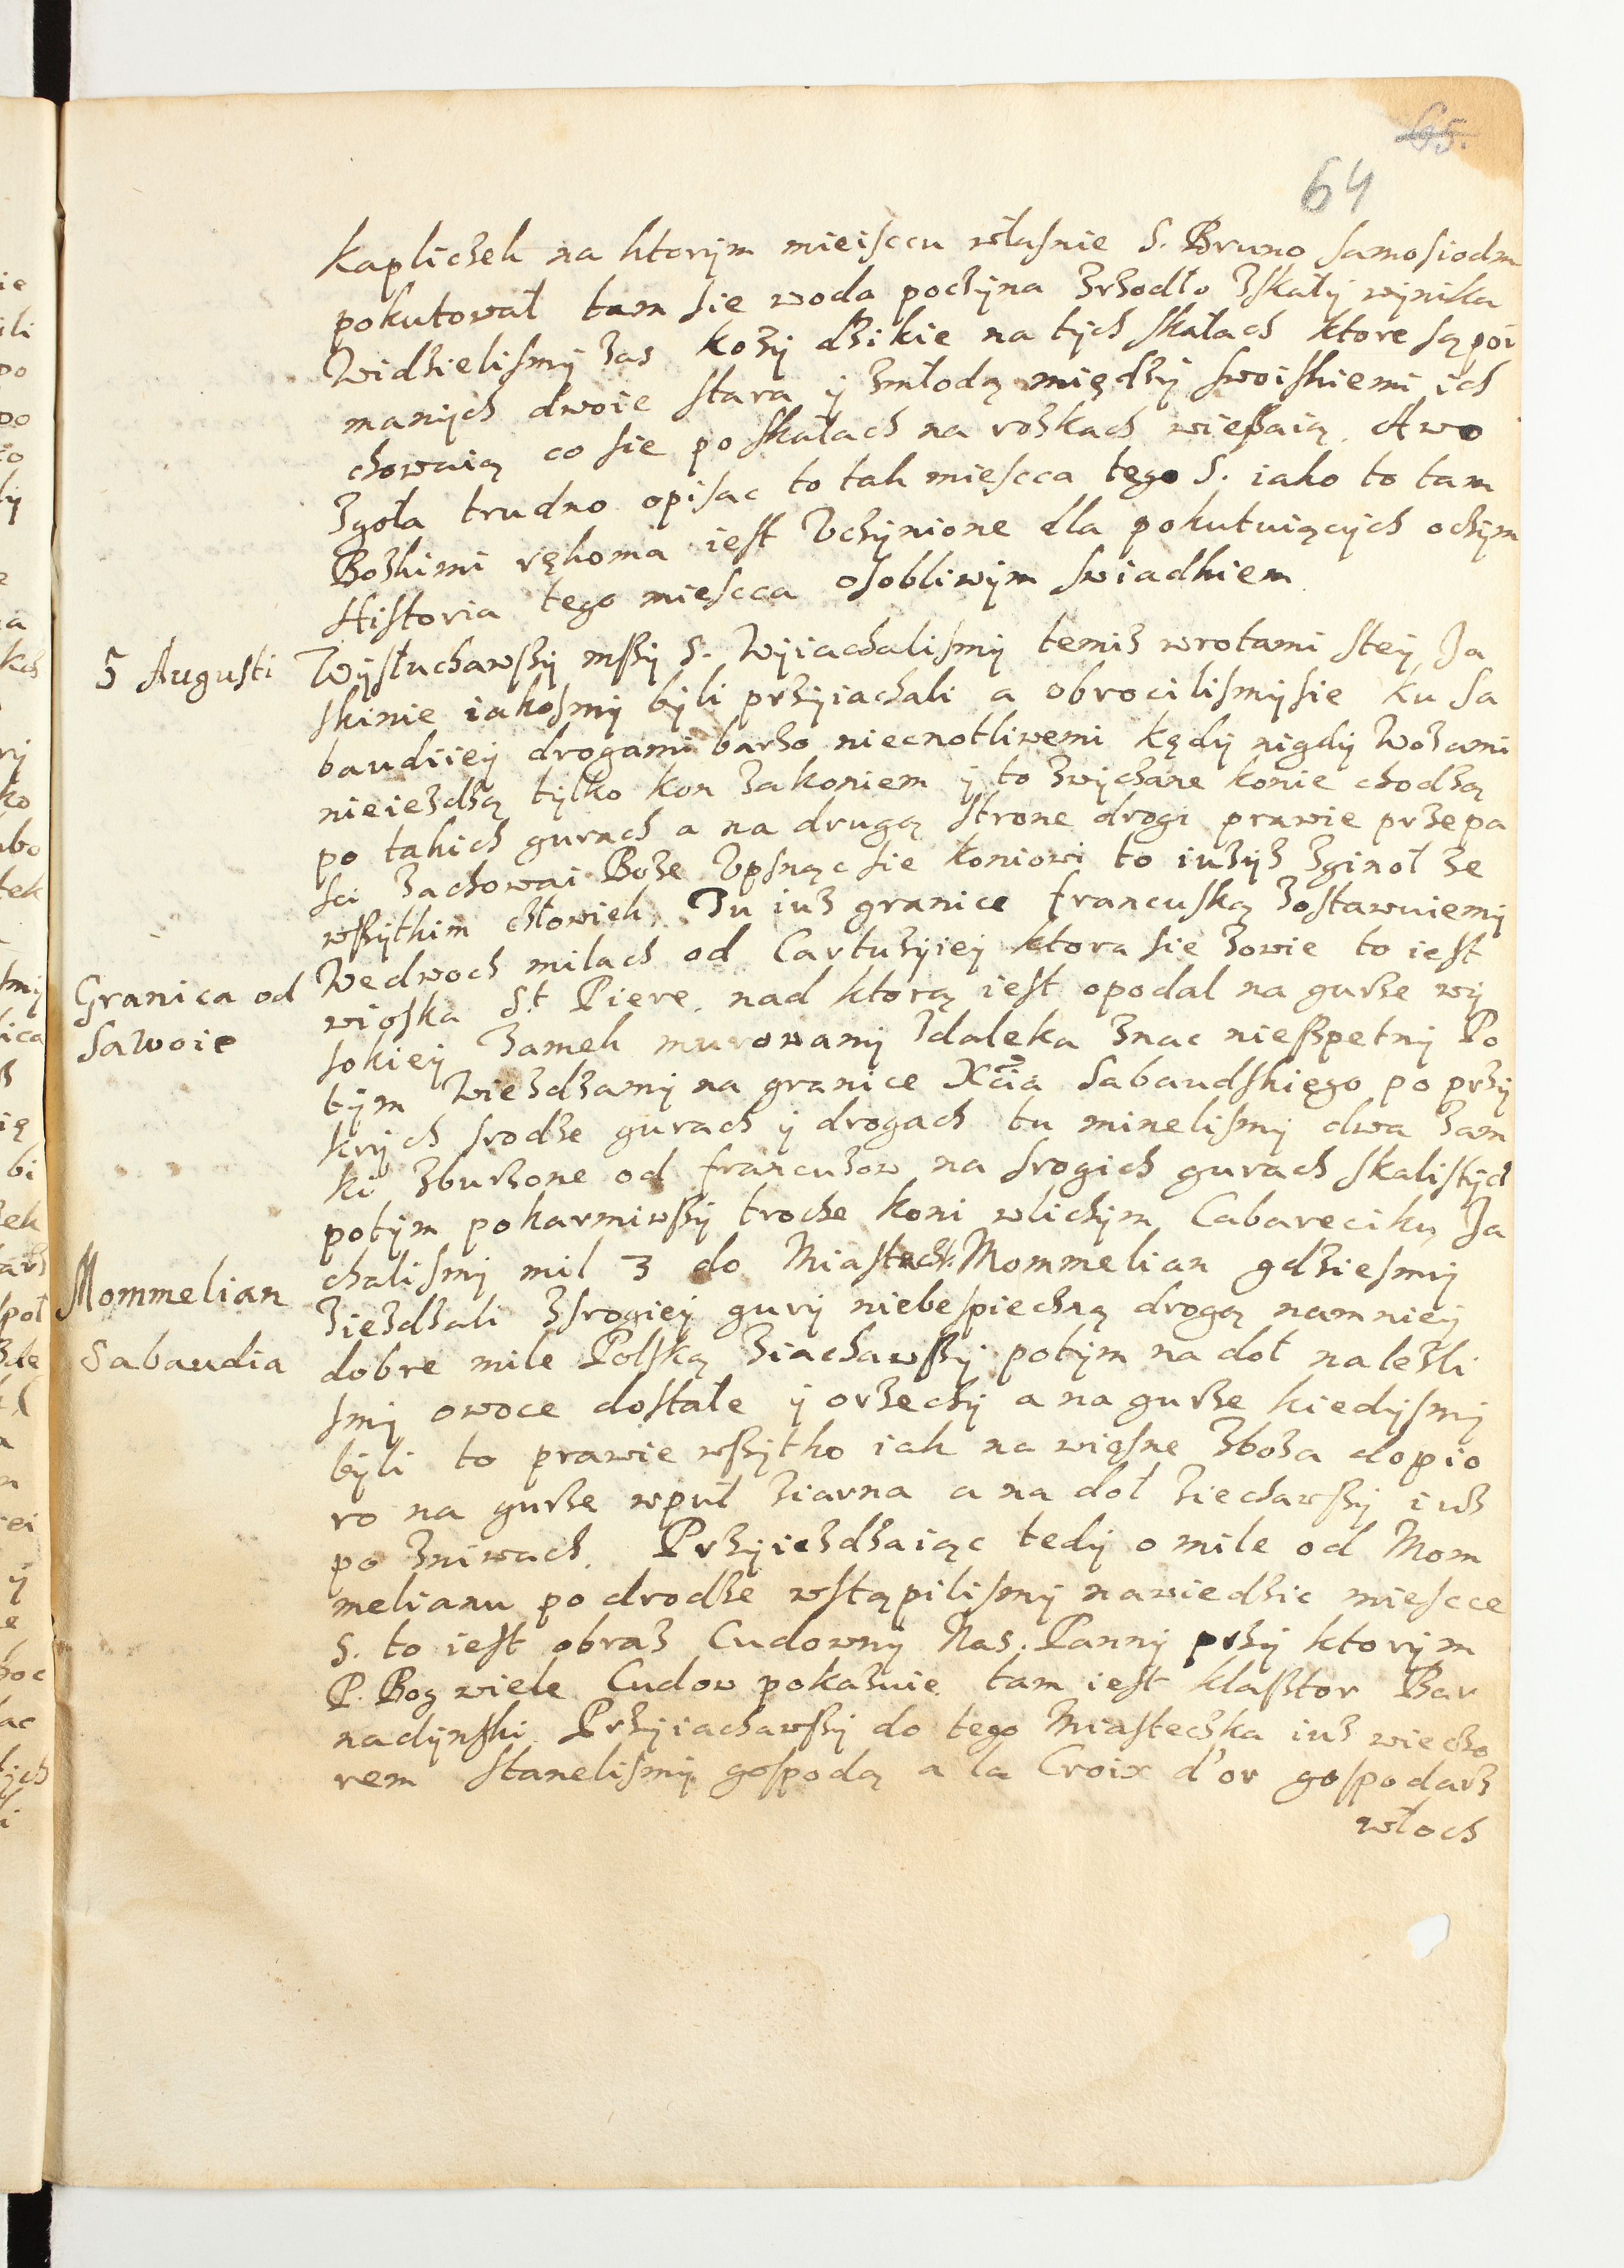 65.
64
kapliczek na ktorym mieisccu własnie S. Bruno samosiodm
pokutował tam sie woda poczyna zrzodło zskały wynika
Widzielismy zas kozy dzikie na tych skałach ktore są poi
manych dwoie stara y zmłodą między swoiskiemi ich
chowaią co sie po skałach na rozkach wieszaią. Awo
zgoła trudno opisac to tak miescca tego S. iako to tam
Bozkimi rękoma iest Vczynione dla pokutuiących oczym
Historia tego miescca osobliwym swiadkiem
5 Augusti
Wysłuchawszy mszy S. Wyiachalismy temiz wrotami stey Ja
skinie iakosmy byli przyiachali a obrocilismysie ku Sa
baudiiey drogami barzo niecnotliwemi kędy nigdy Wozami
nieiezdzą tylko kon zakoniem y to zwyczane konie chodzą
po takich gurach a na drugą strone drogi prawie przepa
sci zachowai Boze Vpsnąc sie koniowi to iuzyz zginoł ze
wszytkim człowiek. Tu iuz granice francuską zostawuiemy
Granica od
Sawoie
Wedwoch milach od Cartuzyiey ktora sie zowie to iest
wioska St. Piere. nad ktorą iest opodal na gurze wy
sokiey zamek murowany zdaleka znac nieszpetny Po
tym Wiezdzamy na granice Xcia Sabaudskiego po przy
krych srodze gurach y drogach tu minelismy dwa zam
ki zburzone od francuzow na srogich gurach skalistych
potym pokarmiwszy troche koni wlichym Cabareciku Ja
Mommelian
chalismy mil 3 do Miasteczk Mommelian gdziesmy
ziezdzali zsrogiey gury niebespieczną drogą namniey
Sabaudia
dobre mile Polską ziachawszy potym na doł nalezli
smy owoce dostałe y orzechy a na gurze kiedysmy
byli to prawie wszytko iak na więsne zboza dopio
ro na gurze wpuł ziarna a na doł ziechawszy iuz
po zniwach. Przyiezdzaiąc tedy o mile od Mom
melianu po drodze wstąpilismy nawiedzic miescce
S. to iest obraz Cudowny Nas. Panny przy ktorym
P. Bog wiele Cudow pokazuie tam iest klasztor Bar
nadynski Przyiachawszy do tego Miasteczka iuz wieczo
rem stanelismy gospodą a la Croix d'or gospodarz
włoch